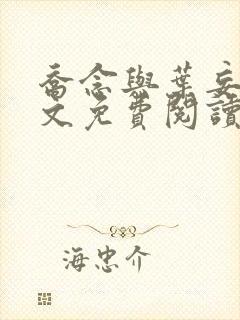 喬念與葉妄
文免費閱讀
海忠介